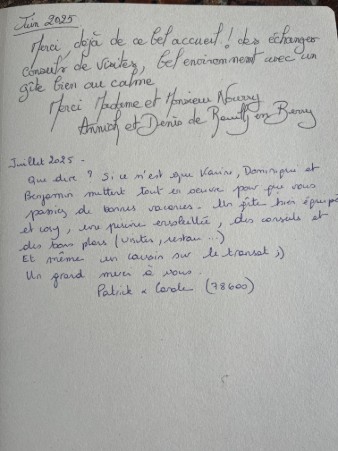 Juin 2025
Merci déjà de ce bel accueil ! des échanges
conseils de visites, bel environnement avec un
gîte bien au calme
Merci Madame et Monsieur Nourry
Annick et Denis de Reuilly en Berry
Juillet 2025 -
Que dire ? Si ce n'est que Karine, Dominique et
Benjamin mettent tout en oeuvre pour que vous
passiez de bonnes vacances. Un gîte bien équipé
et cosy, une piscine ensoleillée, des conseils et
des bons plans (visites, restau ...)
Et même un coussin sur le transat ;)
Un grand merci à vous.
Patrick & Carole (78600)